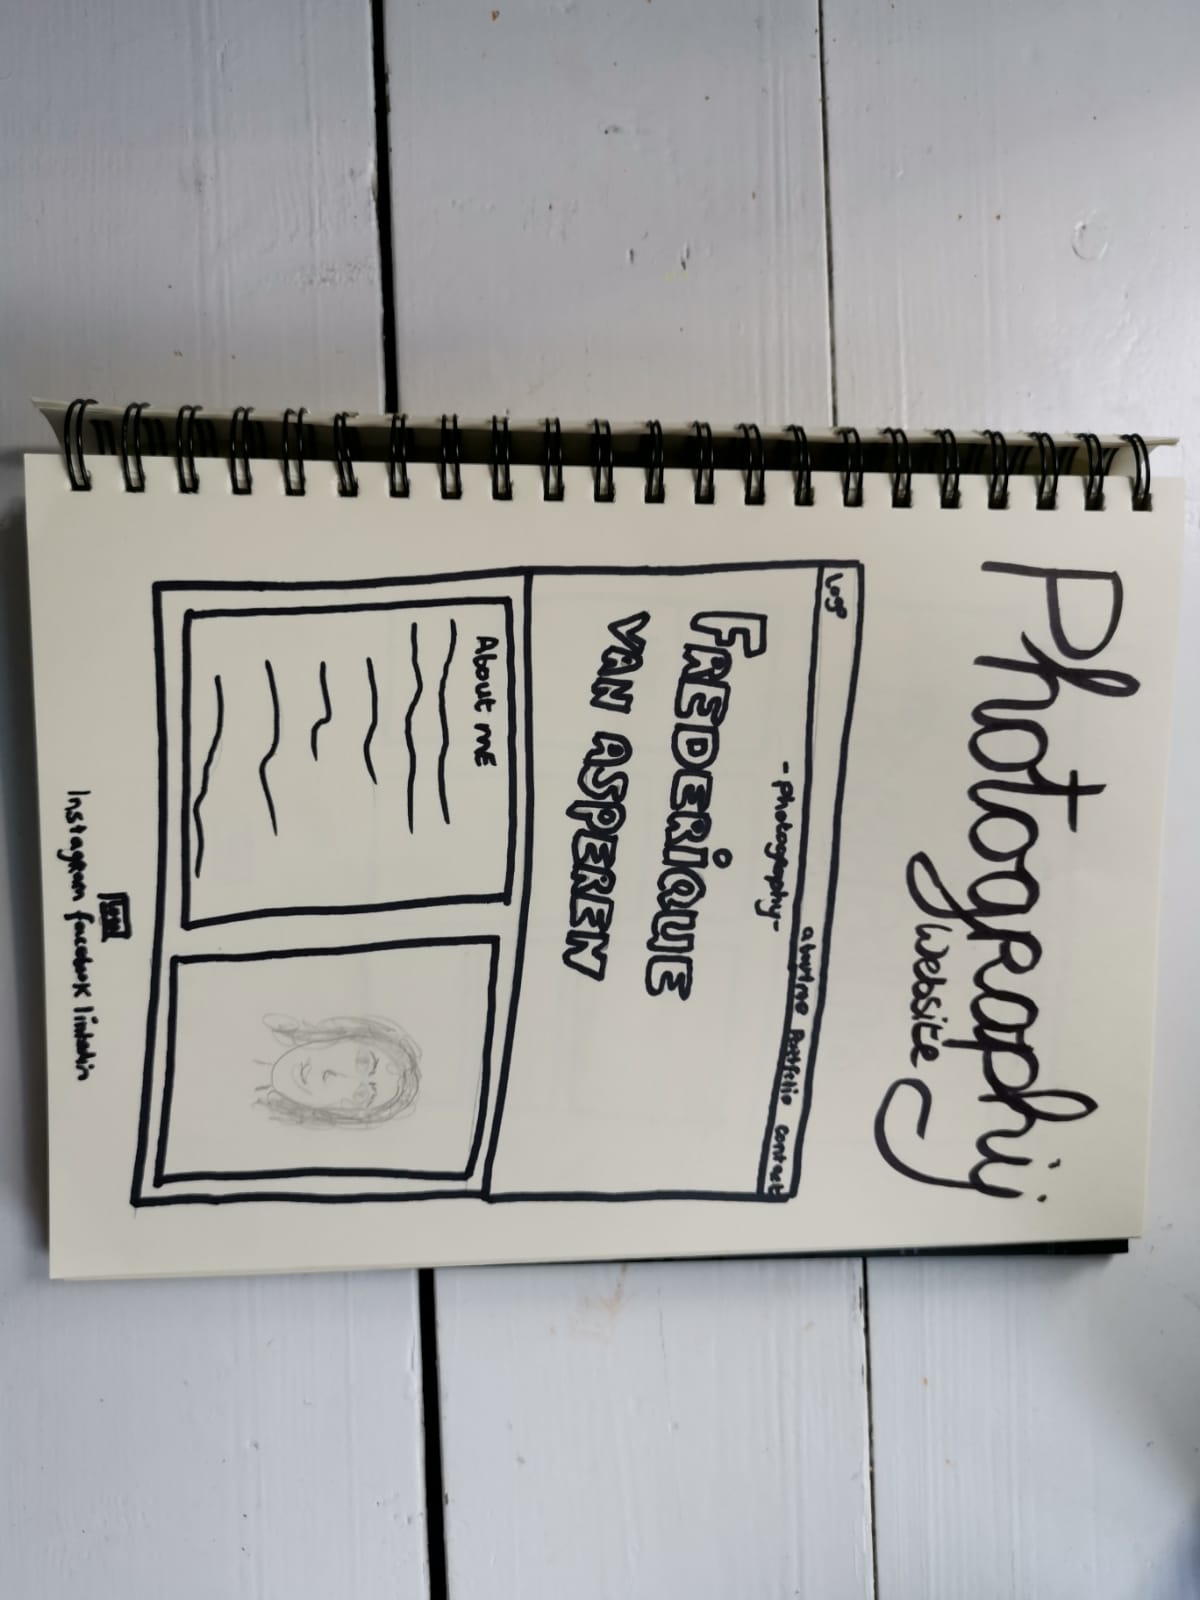 Photography
Website
Logo
about me Portfolio contact
- photography -
FREDERiQUE
VAN ASPEREN
About mE
logo
Instagram facebook linkedin